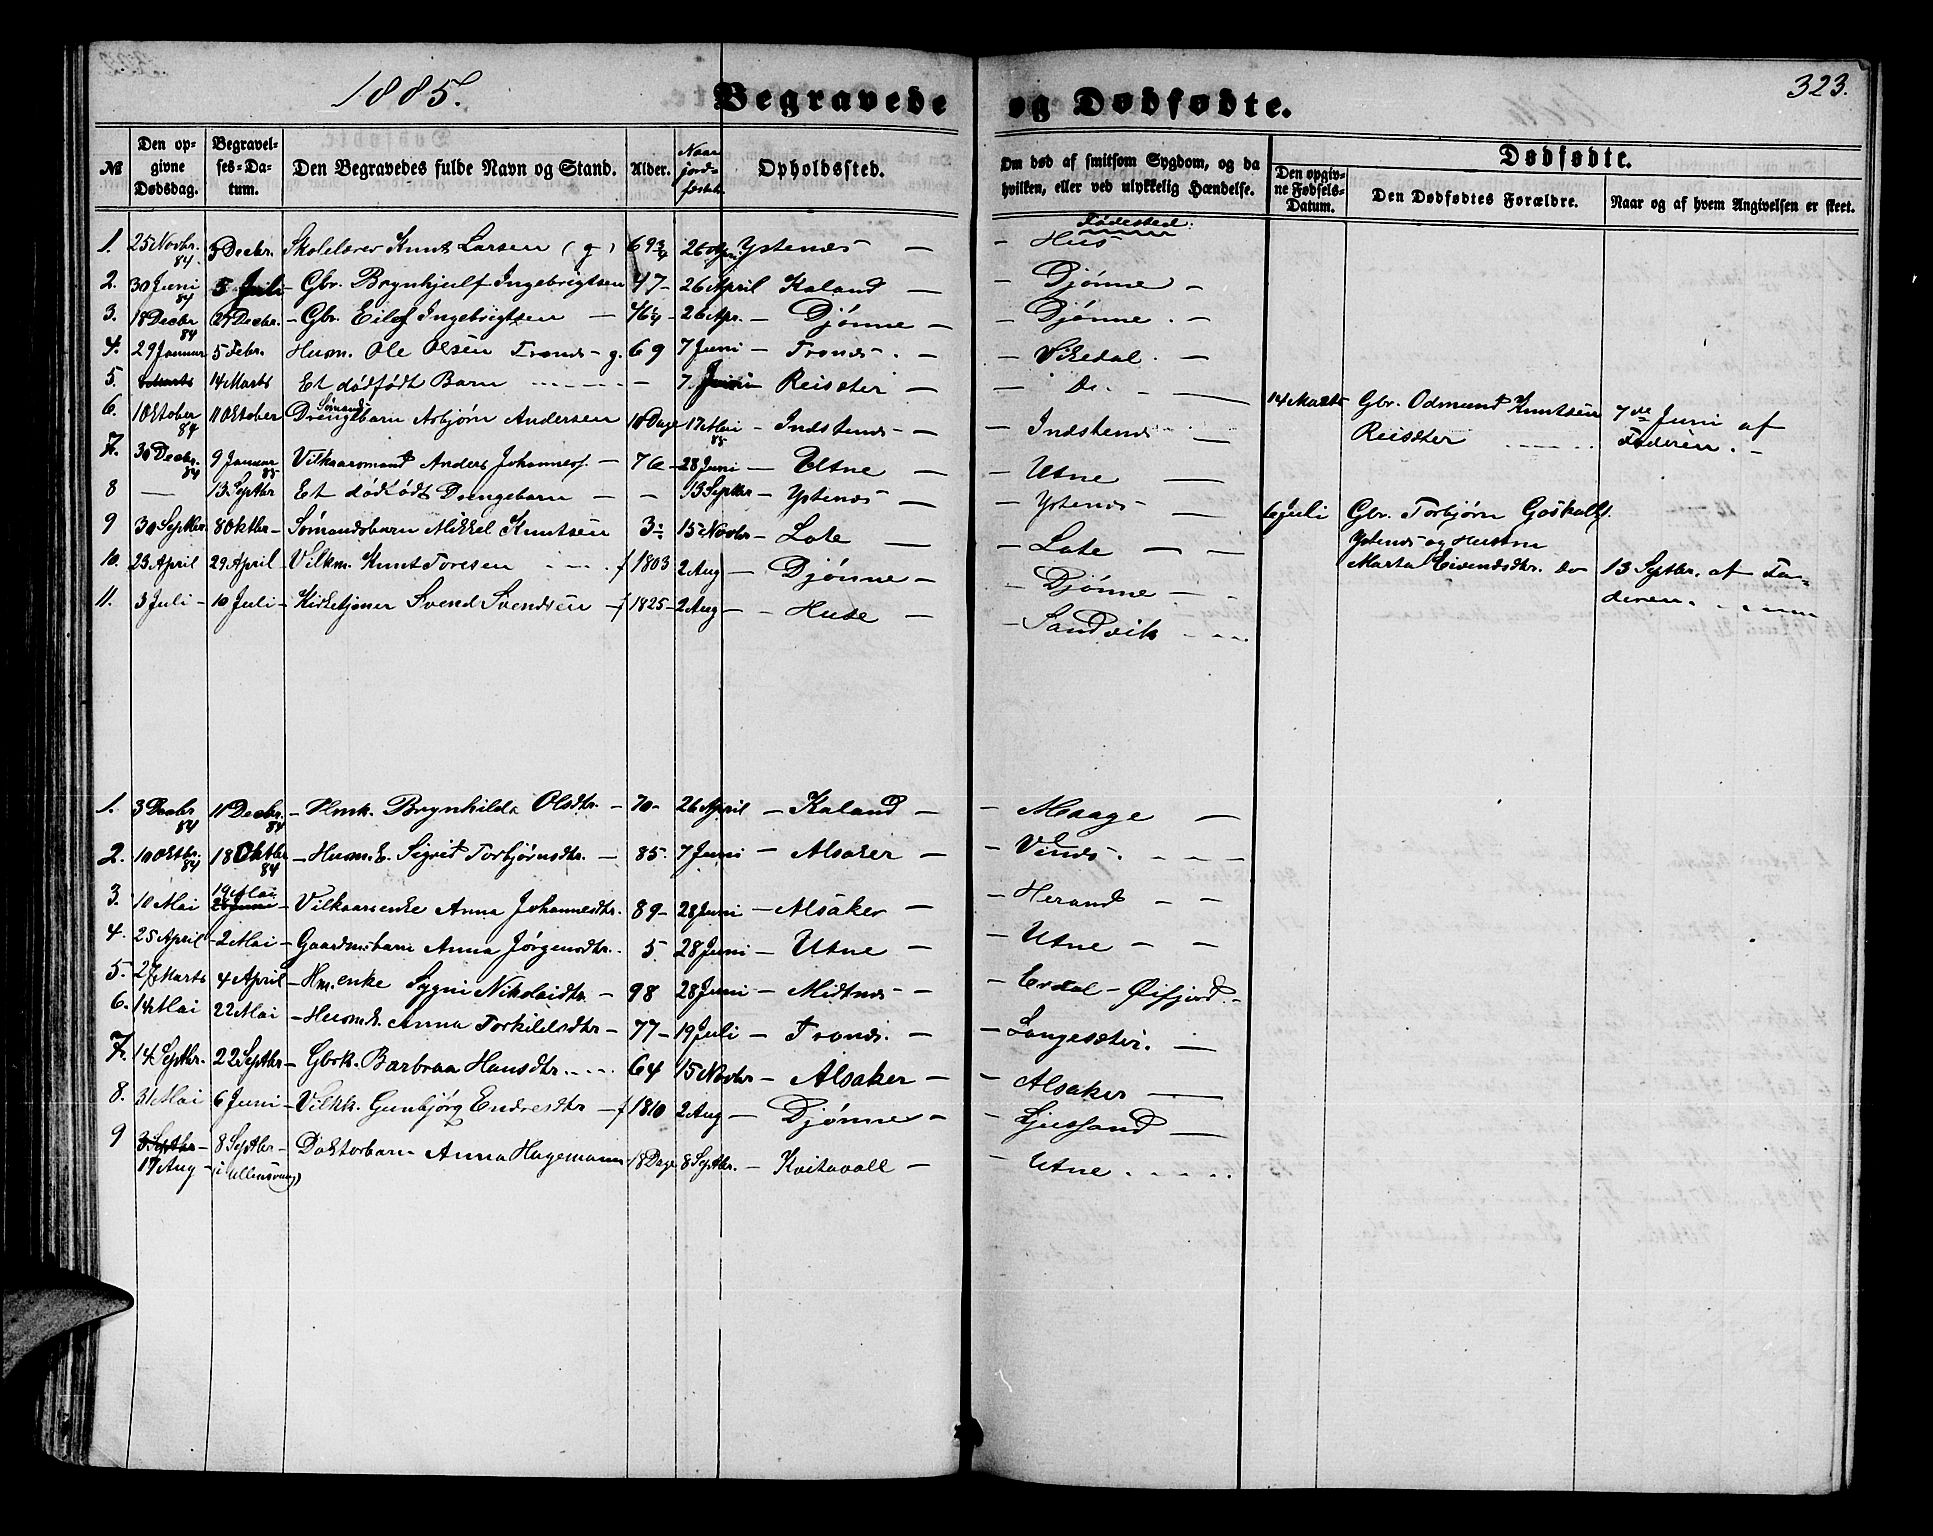 1885.
Begravede
og Dødfødte.
323.
№
Den op-
givne
Dødsdag.
Begravel-
ses-Da-
tum.
Den Begravedes fulde Navn og Stand.
Alder.
Naar
jords-
fæstet
Opholdssted.
Om død af smitsom Sygdom, og da
hvilken, eller ved ulykkelig Hændelse.
Dødfødte.
Den opgiv-
ne Fødsels-
Datum.
Den Dødfødtes Forældre.
Naar og af hvem Angivelsen er skeet.
Fødested:
1. 25 Novbr. 84 3 Decbr. Skolelærer Knut Larsen (g) 69 3/4 26 Apr. Ystenæs — — Hus
2. 30 Juni 84 5 Juli — Gbr. Brynhjulf Ingebrigtsen 47 — 26 April Kaland — — Djønne —
3. 18 Decbr 84 27 Decbr. — Gbr. Eilef Ingebrigtsen — 46 — 26 Apr. — Djønne — — Djønne. —
4. 29 Januar 5 Febr. Husm. Ole Olsen Tronds — g. 69 7 Juni — Tronds. — — Vikedal. —
5. 14 Marts Et dødfødt Barn — — 7 Juni Reisæter — — Do. — 14 Marts Gbr. Odmund Knutsen 7de Juni af
Reisæter Faderen. —
6. 1 Oktober 84 11 Oktober Sømands Drengebarn Asbjørn Andersen 10 Dage 17 Mai 85 — Indstenæs — — Indstenæs —
7. 30 Decbr. 84 9 Januar 85 Vilkaarsmand Anders Johanness. — 76 — 28 Juni — Utne — — Utne —
8 — 13 Septbr Et dødfødt Drengebarn — — 13 Septbr — Ystenæs — — Ystenæs — 6 Juli Gbr. Torbjørn Goskalfs.
Ystenæs og Hustru
Marta Eivendsdtr. do 13 Septbr. af Fa-
deren.
9 30 Septbr. 8 Oktbr — Sømandsbarn Mikkel Knutsen 3 15 Novbr — Lote — — Lote — —
10. 23 April 29 April — Vilkm. Knut Toresen f 1803 2 Aug — Djønne — — Djønne —
11. 3 Juli — 10 Juli — Kirketjener Svend Svendsen — f 1825 — 2 Aug — — Huse — — Sandvik —
1. 3 Decbr 84 11 Decbr. 84 — Hmk. Brynhilda Olsdtr. — 70 — 26 April — Kaland — — Maage —
2. 10 Oktbr. 84 18 Oktbr 84 — Husm.E. Sigrid Torbjørnsdtr. — 85. 7 Juni — Alsaker — — Vines.
3. 10 Mai 19 Mai — Vilkaarsenke Anna Johannesdtr. 89 — 28 Juni — Alsaker — — Herand — —
4. 25 April — 2 Mai — Gaardmsbarn Anna Jørgensdtr. 5. 28 Juni — Utne — — Utne — —
5. 27 Marts 4 April — Hm.enke Sygni Nikolaidtr — 98 28 Juni — Midtnæs — — Erdal — Øifjord. —
6. 14 Mai 22 Mai — Husm.E. Anna Torkildsdtr — 77 — 19 Juli — Tronds. — — Langesæter. —
7. 14 Septbr. 22 Septbr — Gbrk. Barbraa Hansdtr. 64 15 Novbr — Alsaker — — Alsaker —
8. 31 Mai 6 Juni — Vilkk. Gunbjørg Endresdtr — f 1810 2 Aug — Djønne — — Ljussand —
9 3 Septbr — 8 Septbr — Doktorbarn Anna Hagemann 18 Dage 8 Septbr. — Kvitavoll — — Utne
17 Aug — (i Ullensvang)